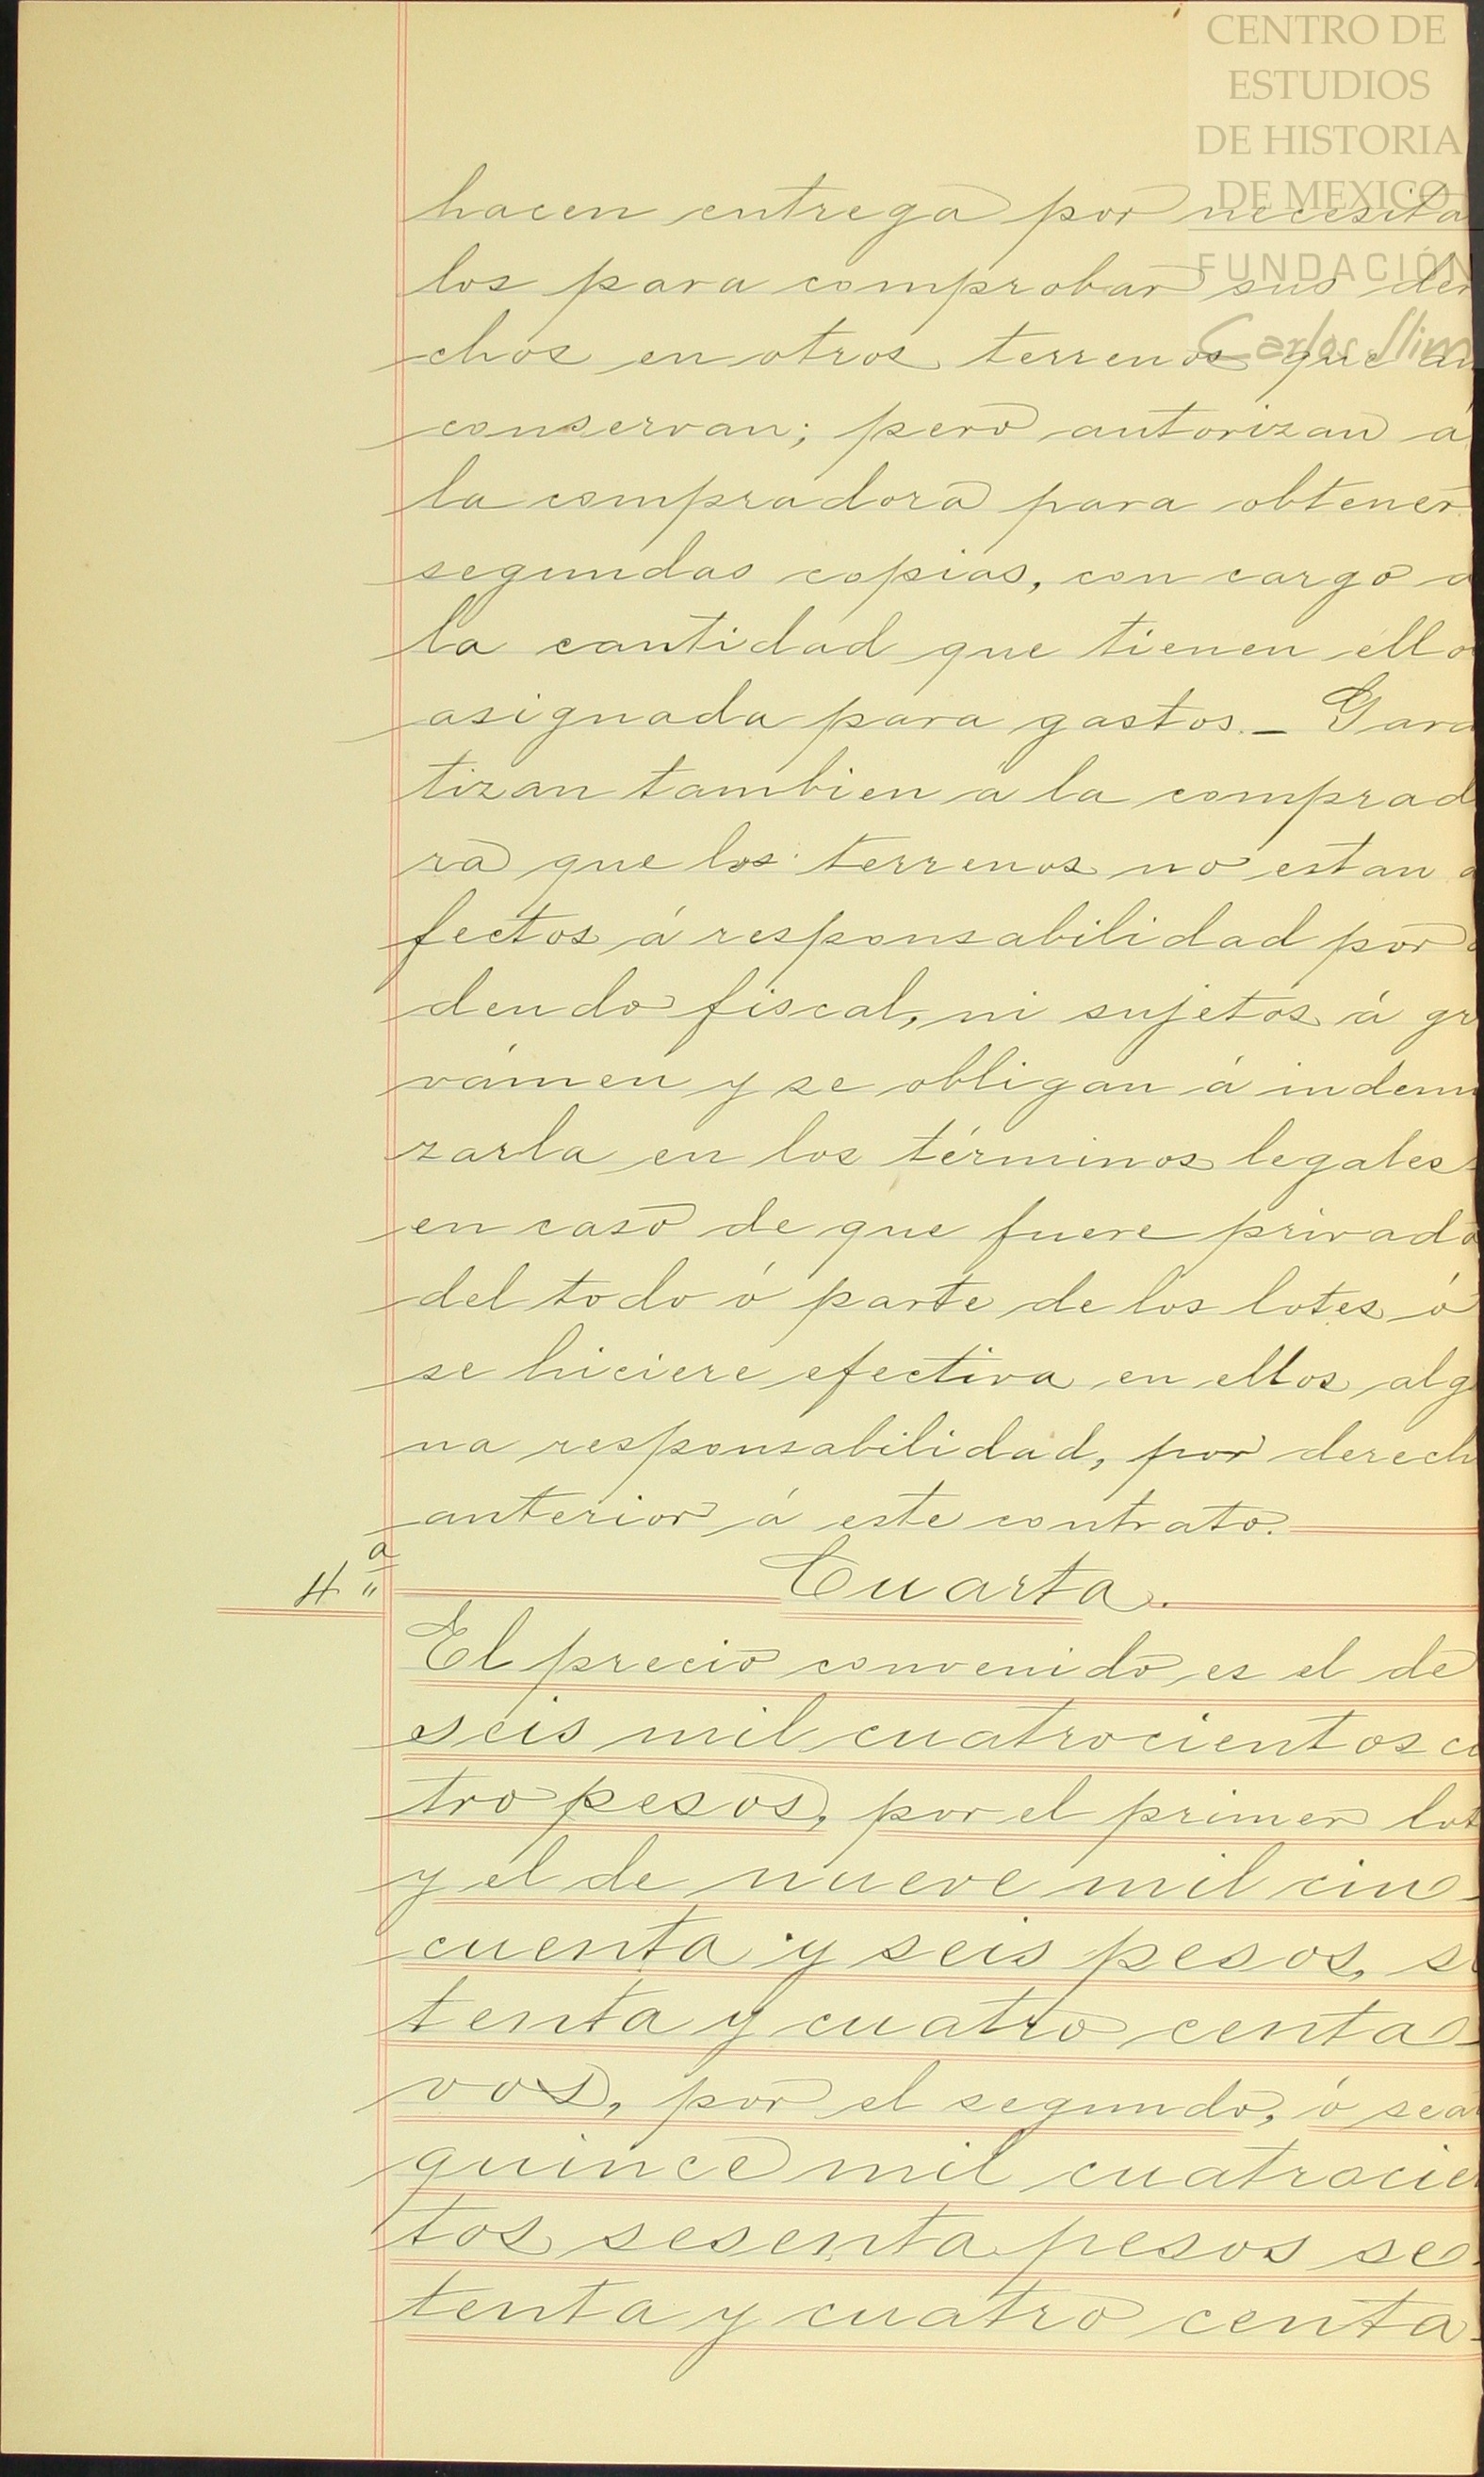 CENTRO DE
ESTUDIOS
DE HISTORIA
DE MEXICO
FUNDACIÓN
Carlos Slim
hacen entrega por necesita
los para comprobar sus der
chos en otros terrenos que au
conservan; pero autorizan á
la compradora para obtener
segundas copias, con cargo a
la cantidad que tienen ello
asignada para gastos. _ Gara
tizan tambien á la comprad
ra que los terrenos no estan a
fectos á responsabilidad por
deudo fiscal, ni sujetos á gr
vámen y se obligan á indem
zarla en los términos legales
en caso de que fuere privada
del todo ó parte de los lotes ó
se hiciere efectiva en ellos alg
na responsabilidad, por derech
anterior á este contrato.
4ª Cuarta.
El precio convenido es el de
seis mil cuatrocientos cu
tro pesos, por el primer lot
y el de nueve mil cin-
cuenta y seis pesos, se
tenta y cuatro centa-
vos, por el segundo, ó sea
quince mil cuatrocie
tos sesenta pesos se-
tenta y cuatro centa-